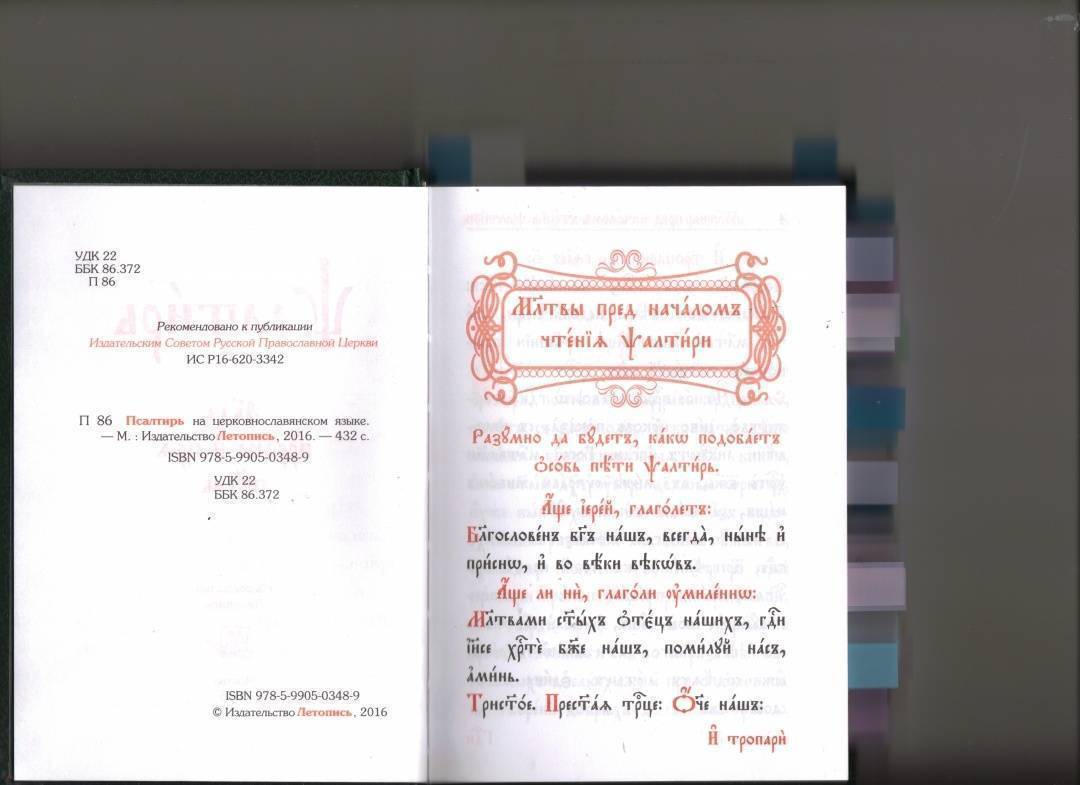 УДК 22
ББК 86.372
П 86
Рекомендовано к публикации
Издательским Советом Русской Православной Церкви
ИС Р16-620-3342
П 86 Псалтирь на церковнославянском языке.
— М. : Издательство Летопись, 2016. — 432 с.
ISBN 978-5-9905-0348-9
УДК 22
ББК 86.372
ISBN 978-5-9905-0348-9
© Издательство Летопись, 2016
Мл҃твы пред нача́ломъ
чте́нїѧ ѱалти́ри
Разꙋ́мно да бꙋ́детъ, ка́кѡ подоба́етъ
ѻ҆со́бь пѣ́ти ѱалти́рь.
А҆́ще і҆ере́й, глаго́летъ:
Бл҃гослове́нъ бг҃ъ на́шъ, всегда̀, ны́нѣ и҆
при́снѡ, и҆ во вѣ́ки вѣкѡ́въ.
А҆́ще ли нѝ, глаго́ли ᲂу҆миле́ннѡ:
Мл҃твами ст҃ы́хъ ѻ҆те́цъ на́шихъ, гдⷭ҇и
і҆и҃се хрⷭ҇тѐ бж҃е на́шъ, поми́лꙋй на́съ,
а҆ми́нь.
Трист҃о́е. Прест҃а́ѧ трⷪ҇це: Ѻ҆́ч҃е на́шъ:
И҆ тропарѝ